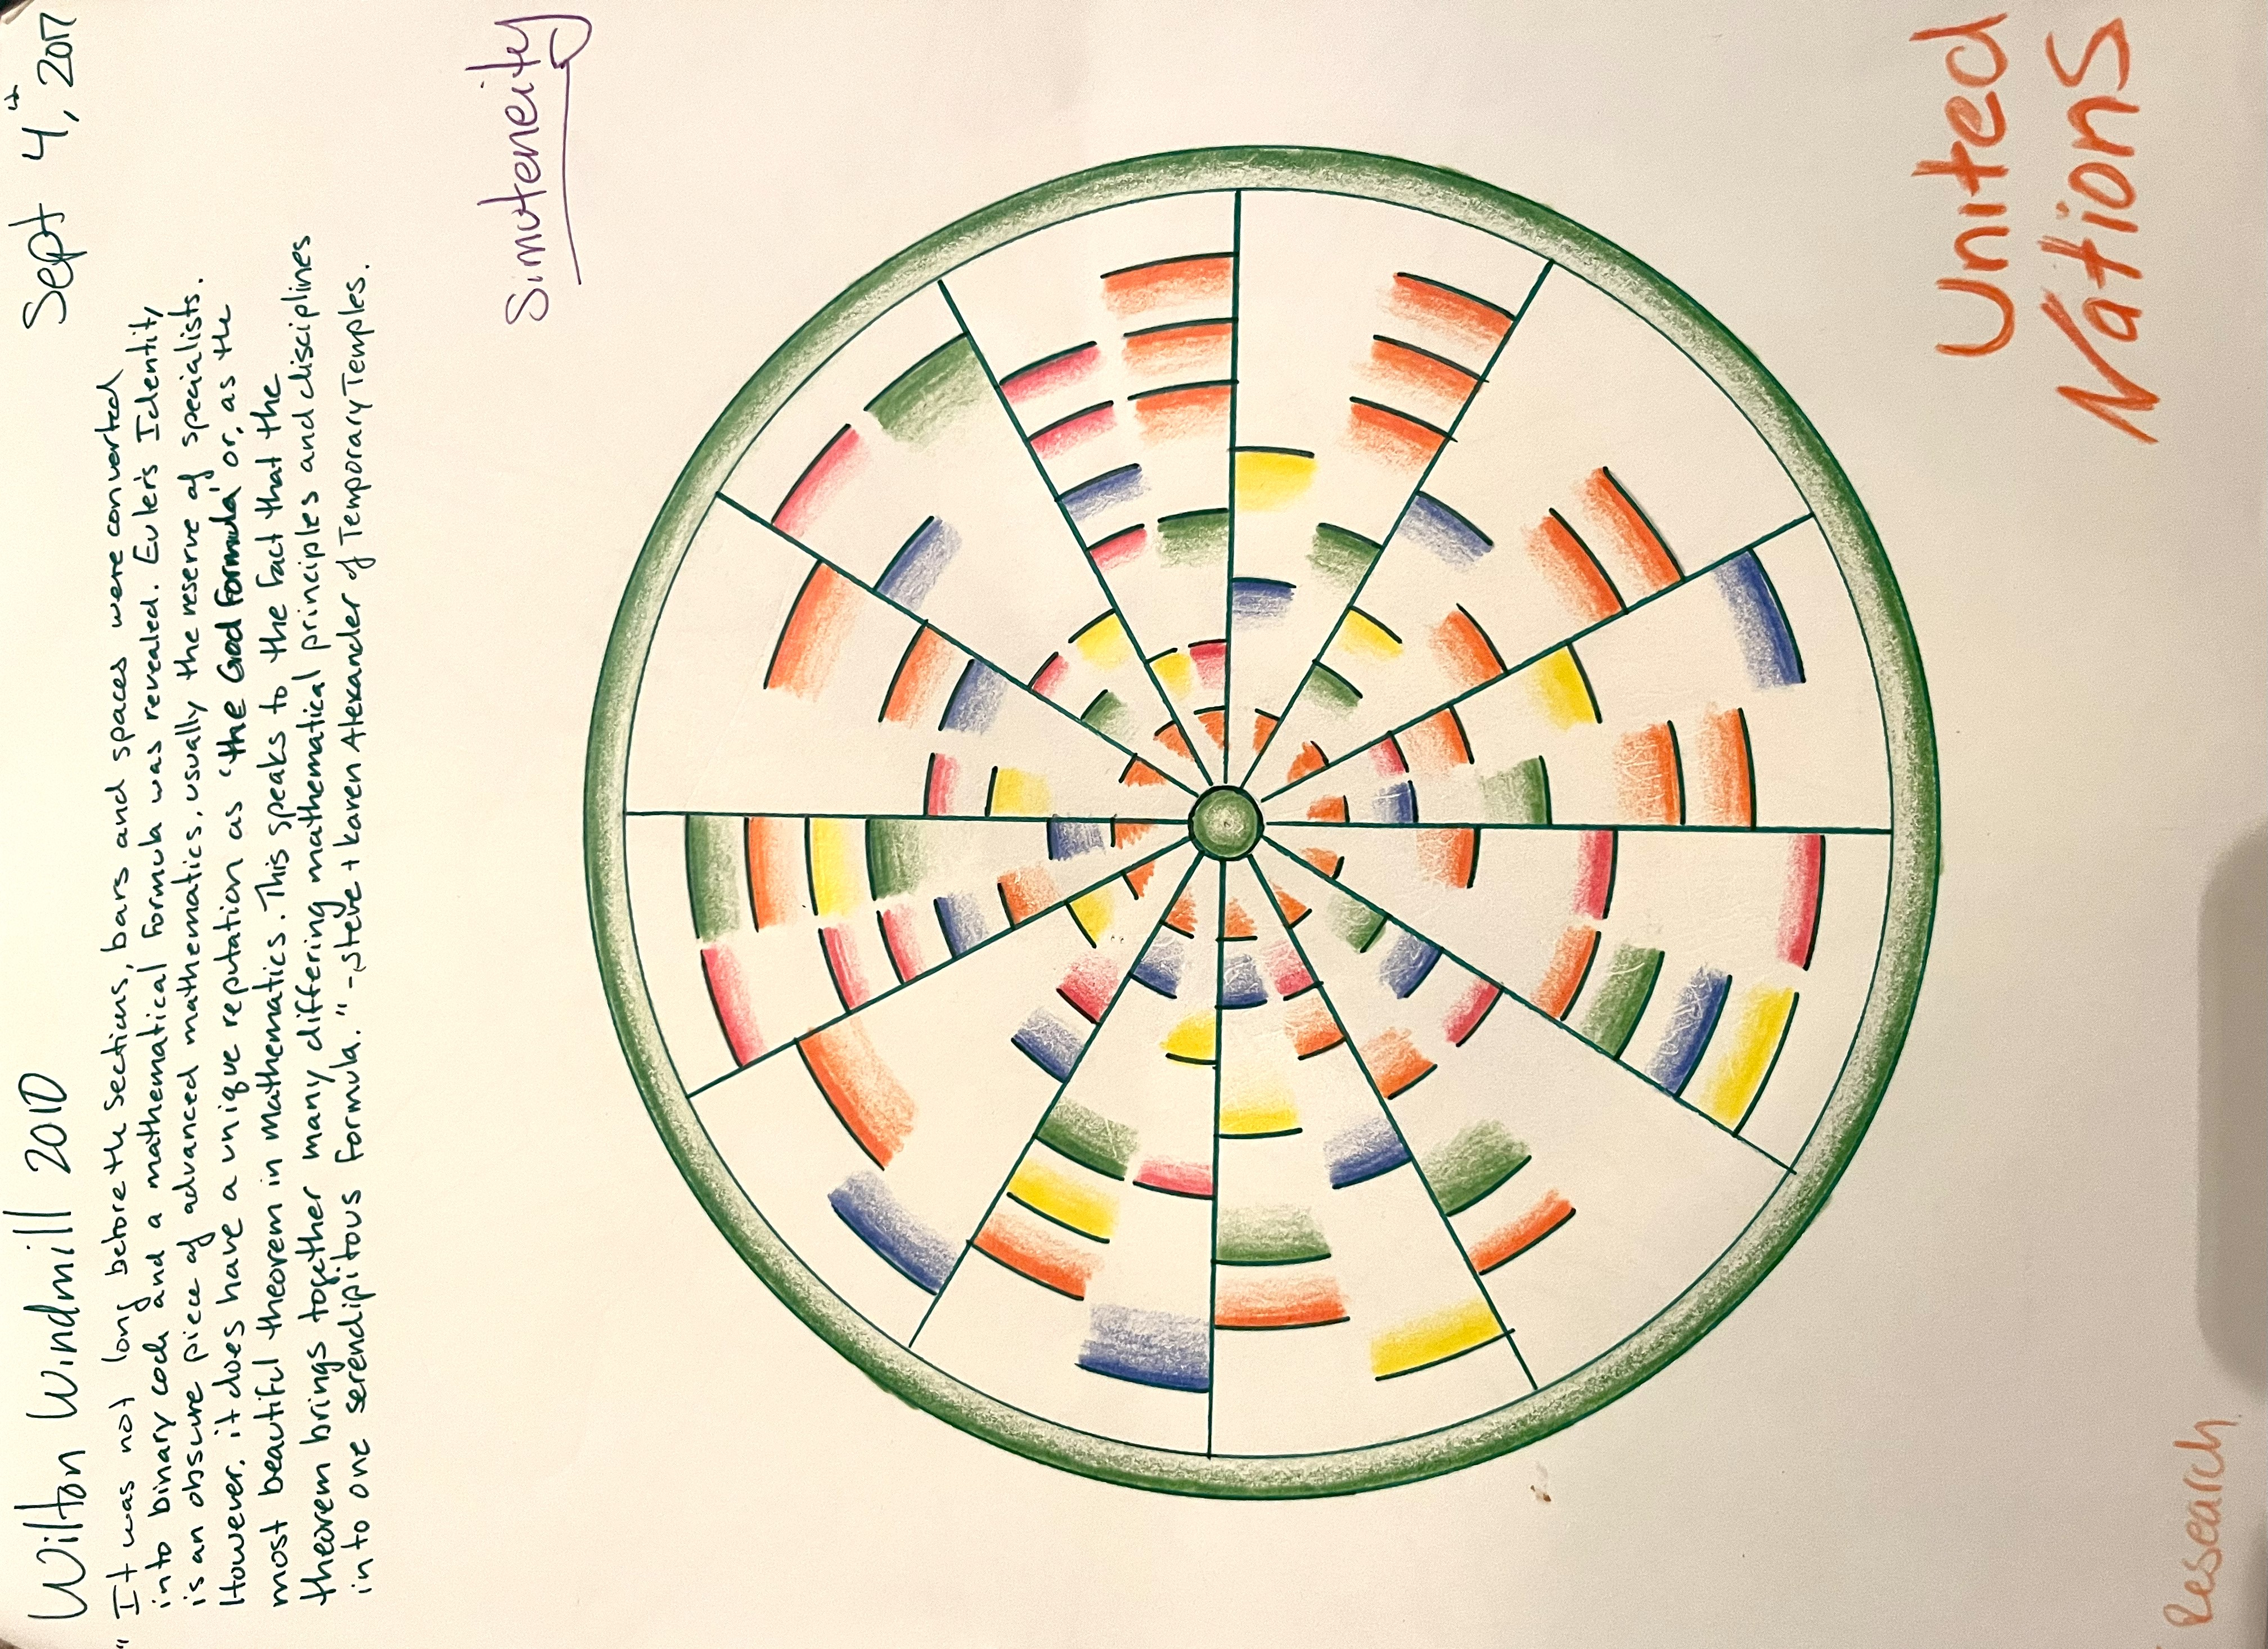 Wilton Windmill 2010
Sept 4th, 2017
" It was not long before the sections, bars and spaces were converted
into binary code and a mathematical formula was revealed. Euler's Identity
is an obscure piece of advanced mathematics, usually the reserve of specialists.
However, it does have a unique reputation as 'the God Formula' or, as the
most beautiful theorem in mathematics. This speaks to the fact that the
theorem brings together many differing mathematical principles and disciplines
into one serendipitous formula." -Steve + Karen Alexander of Temporary Temples.
Simuteneity
United
Nations
Research